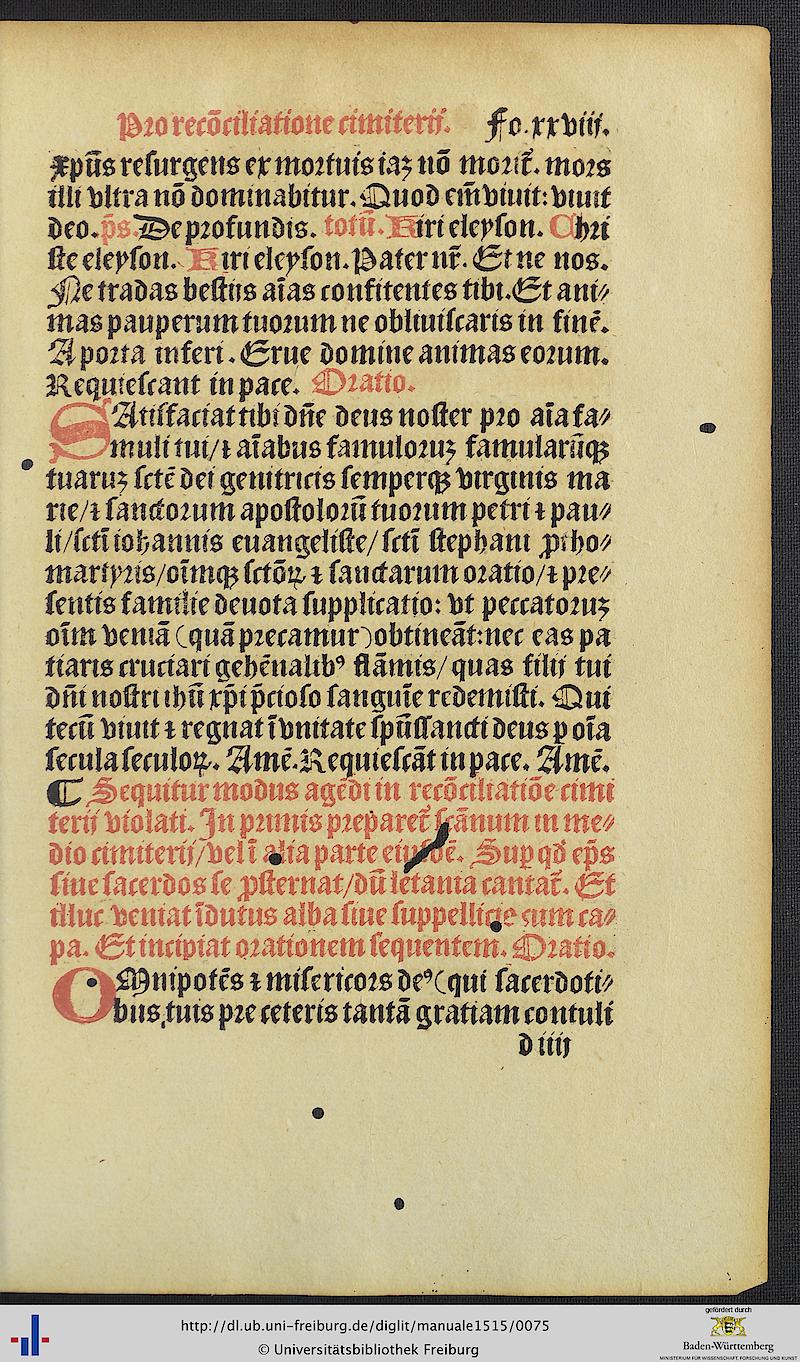 Pro recōciliatione cimiterij. Fo. xxviij.
xpūs resurgens ex mortuis iaꝫ nō morit̄. mors
illi vltra nō dominabitur. Quod em̄ viuit: viuit
deo. p̄s. De profundis. totū. Kiri eleyson. Chri
ste eleyson. Kiri eleyson. Pater nr̄. Et ne nos.
Ne tradas bestiis aīas confitentes tibi. Et ani⸗
mas pauperum tuorum ne obliuiscaris in finē.
A porta inferi. Erue domine animas eorum.
Requiescant in pace. Oratio.
SAtisfaciat tibi dn̄e deus noster pro aīa fa⸗
muli tui/⁊ aīabus famuloruꝫ famularūqꝫ
tuaruꝫ sctē dei genitricis semperqꝫ virginis ma
rie/⁊ sanctorum apostolorū tuorum petri ⁊ pau⸗
li/sctī iohannis euangeliste/ sctī stephani ꝓtho⸗
martyris/oīmqꝫ sctōꝝ ⁊ sanctarum oratio/⁊ pre⸗
sentis familie deuota supplicatio: vt peccatoruꝫ
oīm veniā (quā precamur) obtineāt: nec eas pa
tiaris cruciari gehēnalibꝰ flāmis/ quas filij tui
dn̄i nostri ihū xp̄i p̄cioso sanguīe redemisti. Qui
tecū viuit ⁊ regnat ī vnitate sp̄ussancti deus p oīa
secula seculoꝝ. Amē. Requiescāt in pace. Amē.
¶ Sequitur modus agēdi in recōciliatiōe cimi
terij violati. In primis preparet̄ scānum in me⸗
dio cimiterij/vel ī alia parte eiusdē. Suꝑ qd̄ ep̄s
siue sacerdos se ꝓsternat/dū letania cantat̄. Et
illuc veniat īdutus alba siue suppellicie cum ca⸗
pa. Et incipiat orationem sequentem. Oratio.
OMnipotēs ⁊ misericors deꝰ (qui sacerdoti⸗
bus tuis pre ceteris tantā gratiam contuli
d iiij
http://dl.ub.uni-freiburg.de/diglit/manuale1515/0075
© Universitätsbibliothek Freiburg
gefördert durch
Baden-Württemberg
MINISTERIUM FÜR WISSENSCHAFT, FORSCHUNG UND KUNST